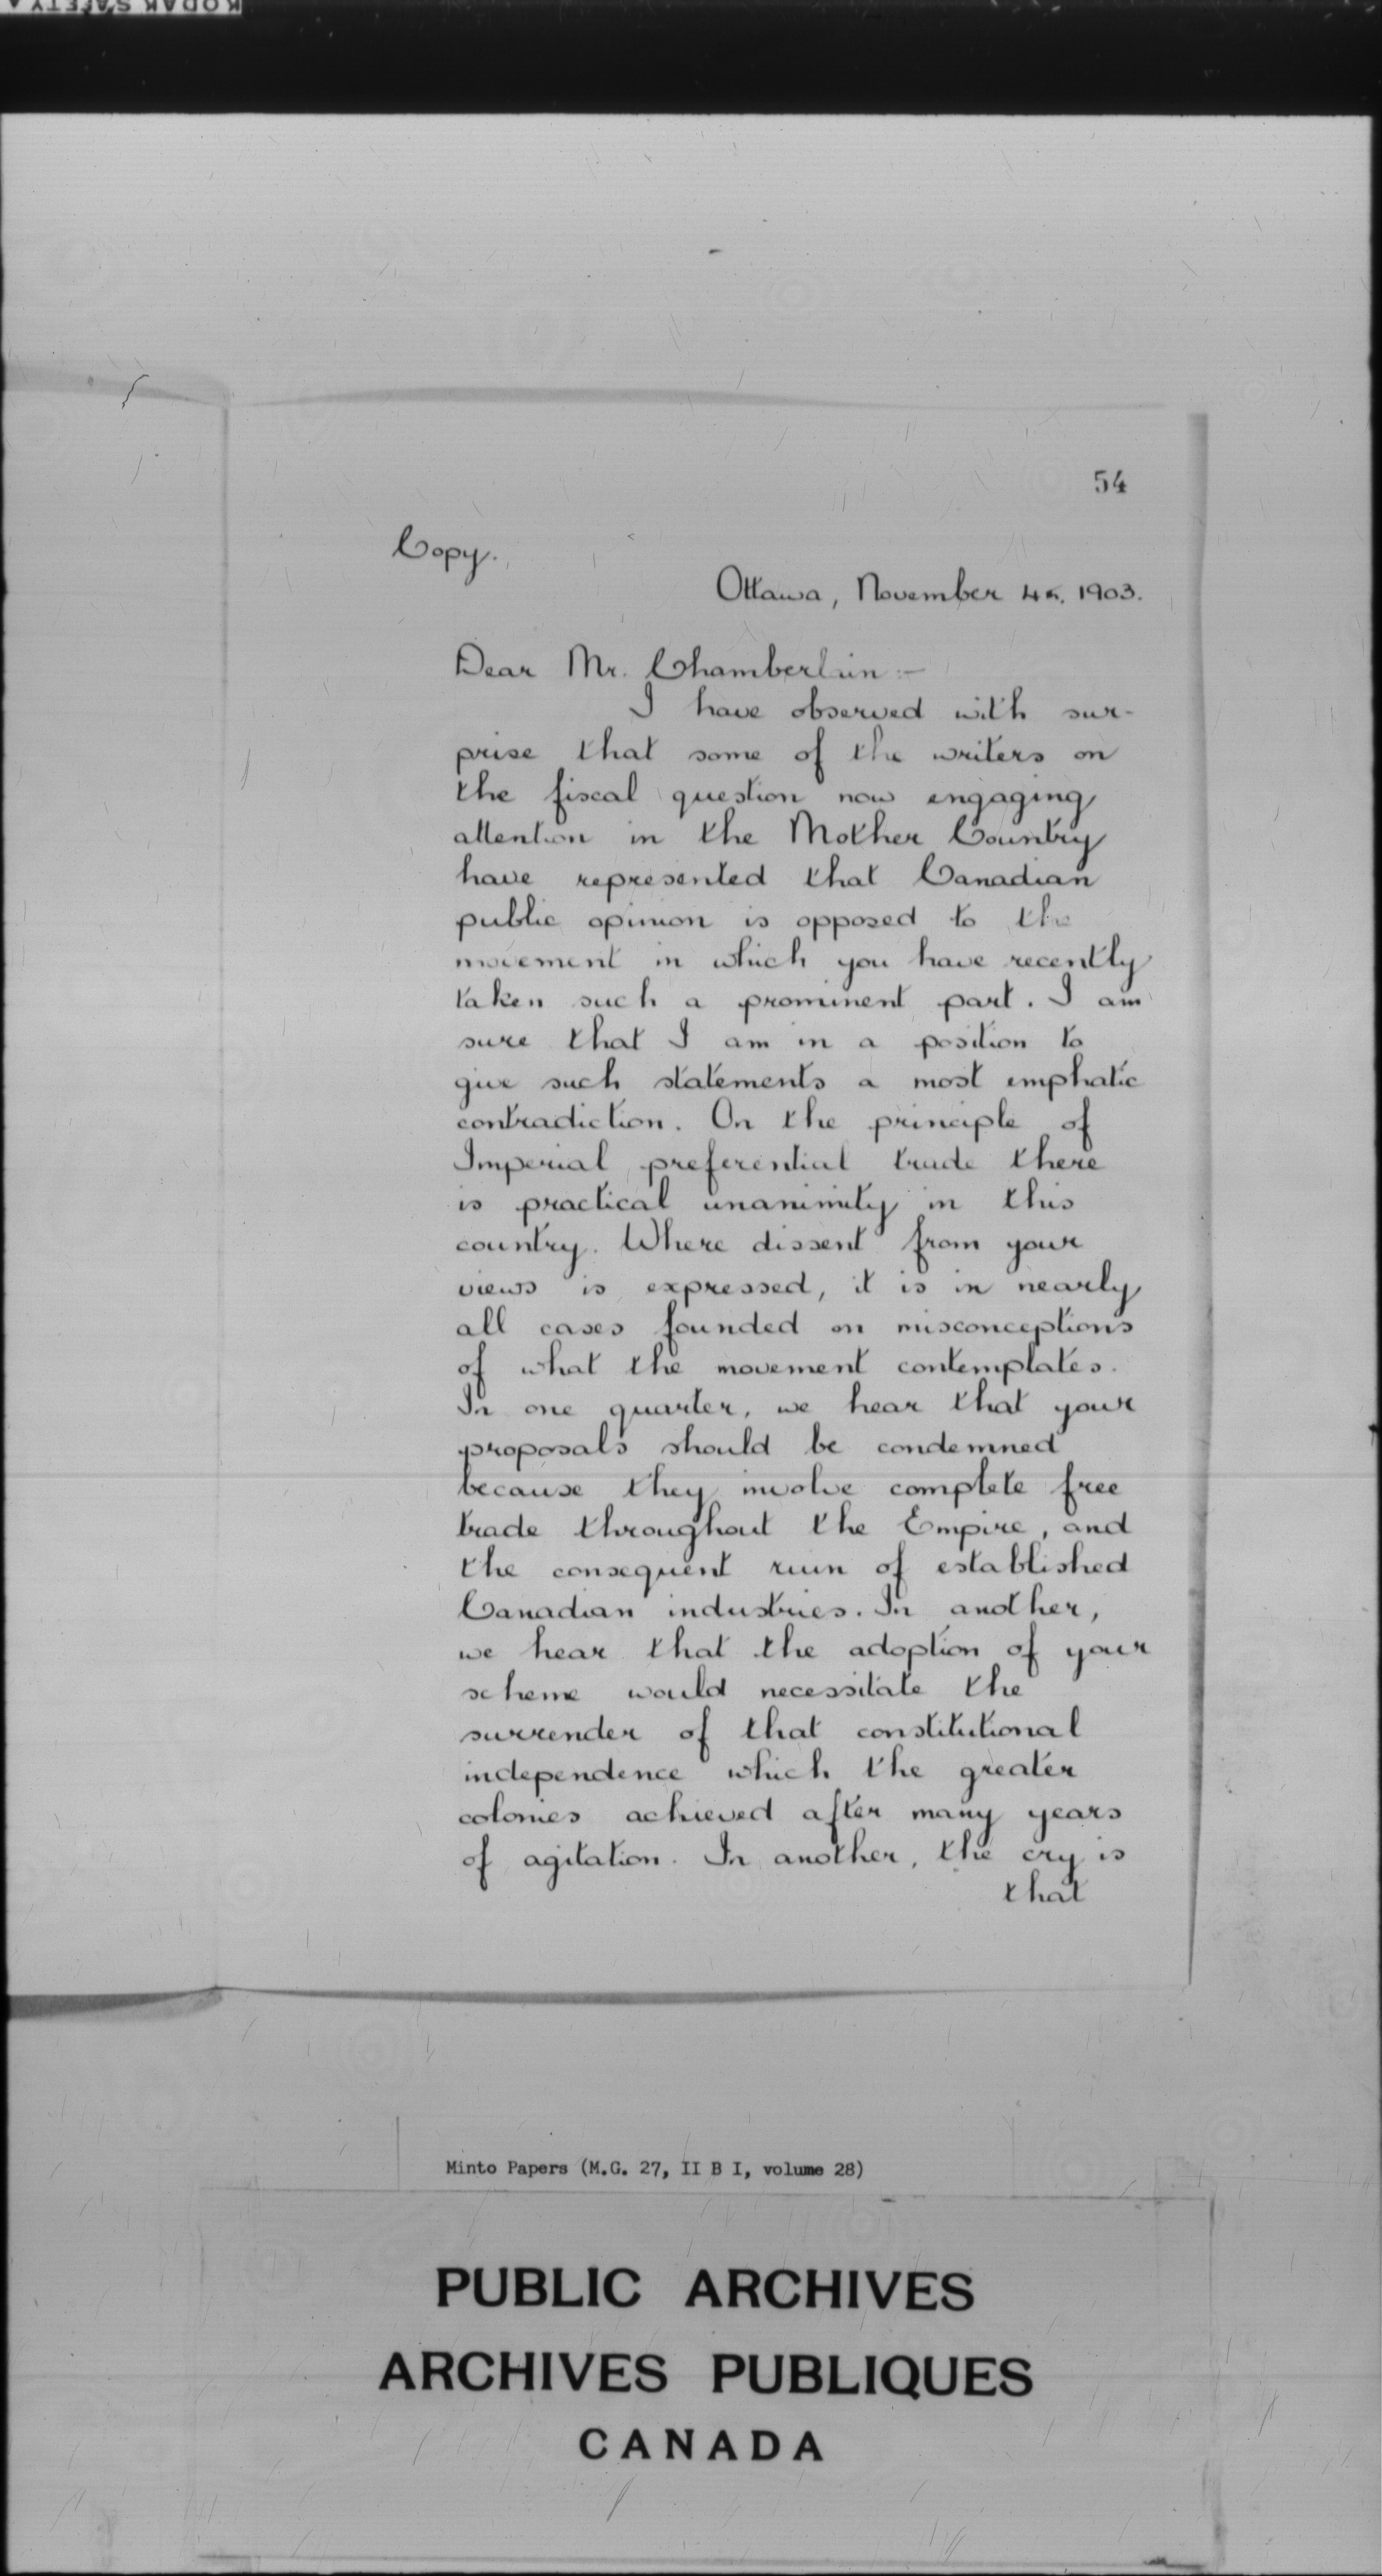 KODAK SAFETY
54
Copy.
Ottawa, November 4th, 1903.
Dear Mr. Chamberlain:-
I have observed with sur-
prise that some of the writers on
the fiscal question now engaging
attention in the Mother Country
have represented that Canadian
public opinion is opposed to the
movement in which you have recently
taken such a prominent part. I am
sure that I am in a position to
give such statements a most emphatic
contradiction. On the principle of
Imperial preferential trade there
is practical unanimity in this
country. Where dissent from your
views is expressed, it is in nearly
all cases founded on misconceptions
of what the movement contemplates.
In one quarter, we hear that your
proposals should be condemned
because they involve complete free
trade throughout the Empire, and
the consequent ruin of established
Canadian industries. In another,
we hear that the adoption of your
scheme would necessitate the
surrender of that constitutional
independence which the greater
colonies achieved after many years
of agitation. In another, the cry is
that
Minto Papers (M.G. 27, II B I, volume 28)
PUBLIC ARCHIVES
ARCHIVES PUBLIQUES
CANADA